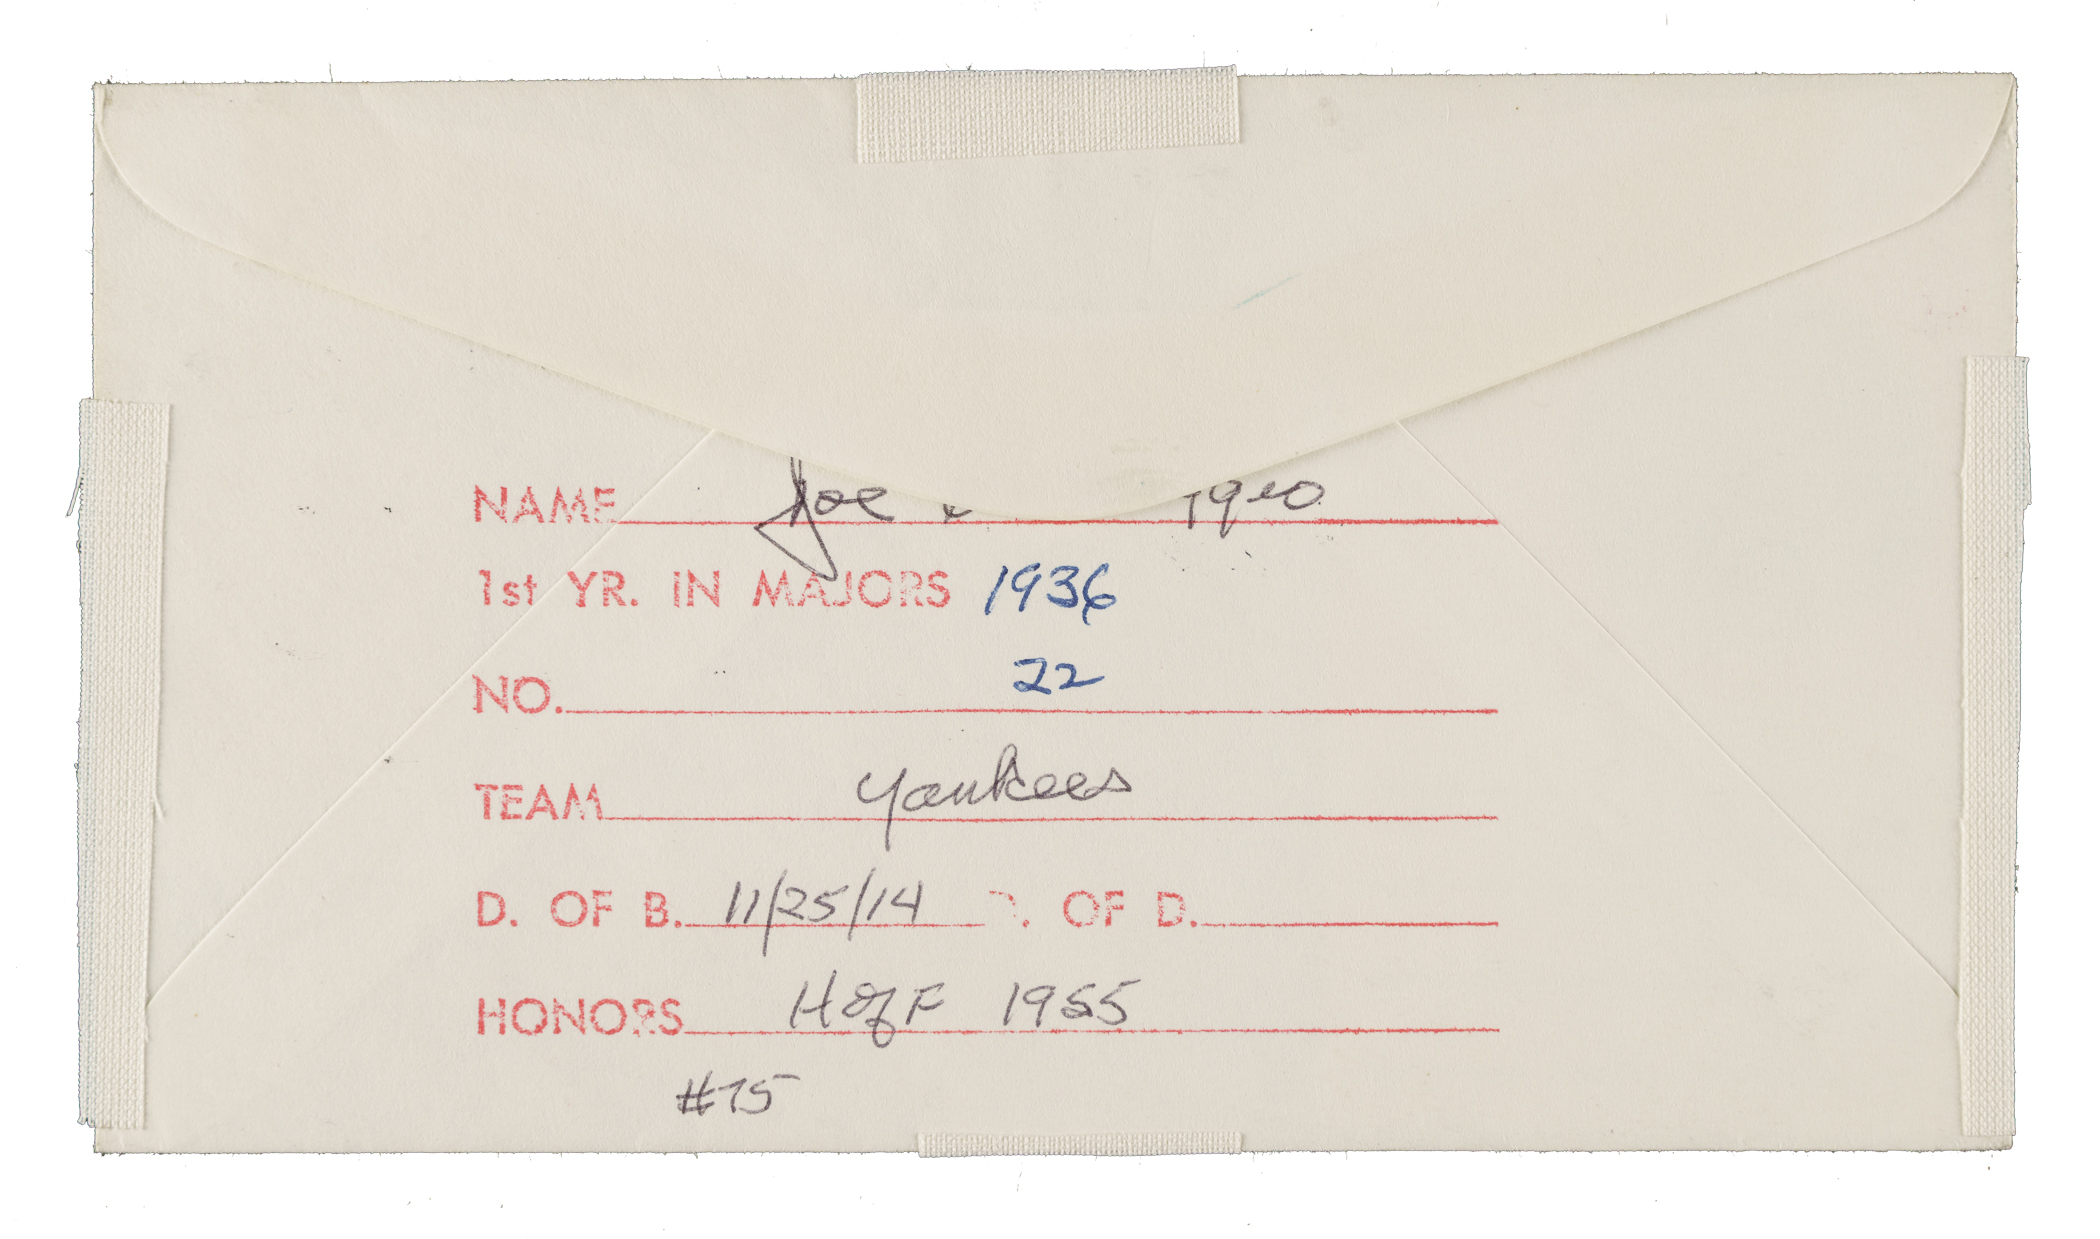 NAME Joe
1st YR. IN MAJORS 1936
NO. 22
TEAM Yankees
D. OF B. 11/25/14 D. OF D.
HONORS H of F 1955
#75